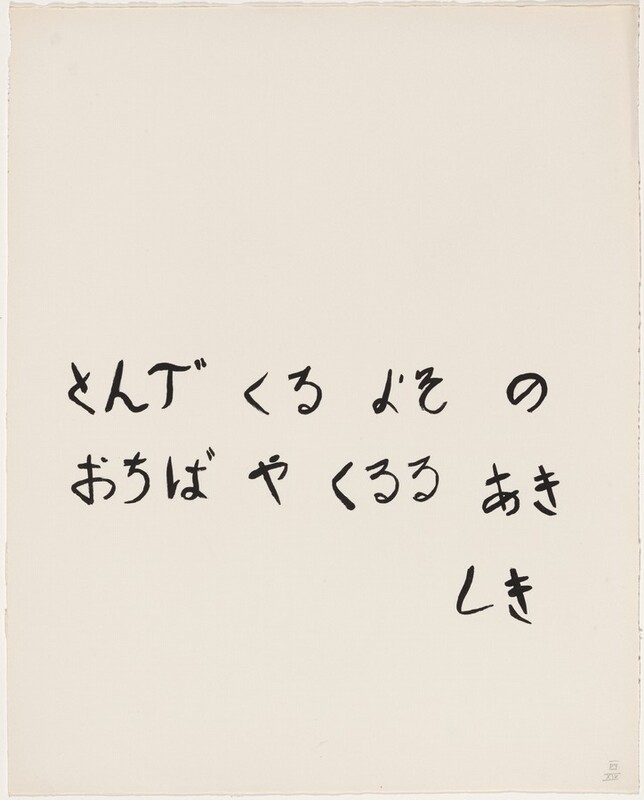 とんで くる よそ の
おちば や くるる あき
しき